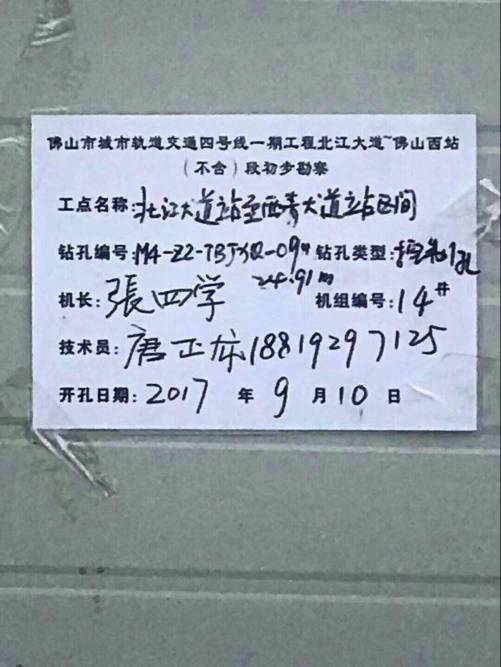 佛山市城市轨道交通四号线一期工程北江大道~佛山西站
（不含）段初步勘察
工点名称:北江大道站至西青大道站区间
钻孔编号:M4-Z2-TBJXQ-09# 钻孔类型:控制孔
24.91m
机长:張四学 机组编号:14#
技术员:唐正东18819297125
开孔日期:2017年9月10日